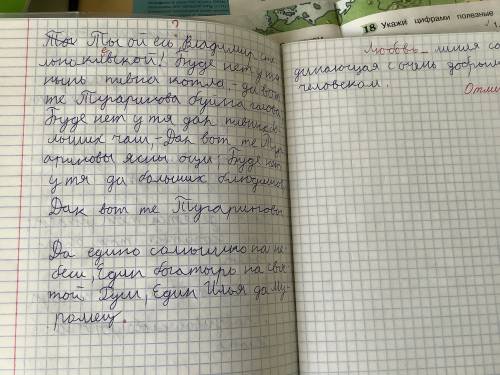 ?
Ты Ты ой еси, Владимир сто
льнокиевской! Буде нет у тя
нынь пивна котла, - да вот
те Тугаринова буйна голова;
Буде нет у тя дак пивных
больших чаш, - Дак вот те Туг
ариновы ясны очи; Буде нет
у тя да больших блюдищев
Дак вот те Тугариновы
Да едино солнышко на не
беси, Един богатырь на свя
той Руси, Един Илья да Му
ромец.
Любовь - линия со
динающая с очень добрым
человеком.
Отли
18 Укажи цифрами полезные